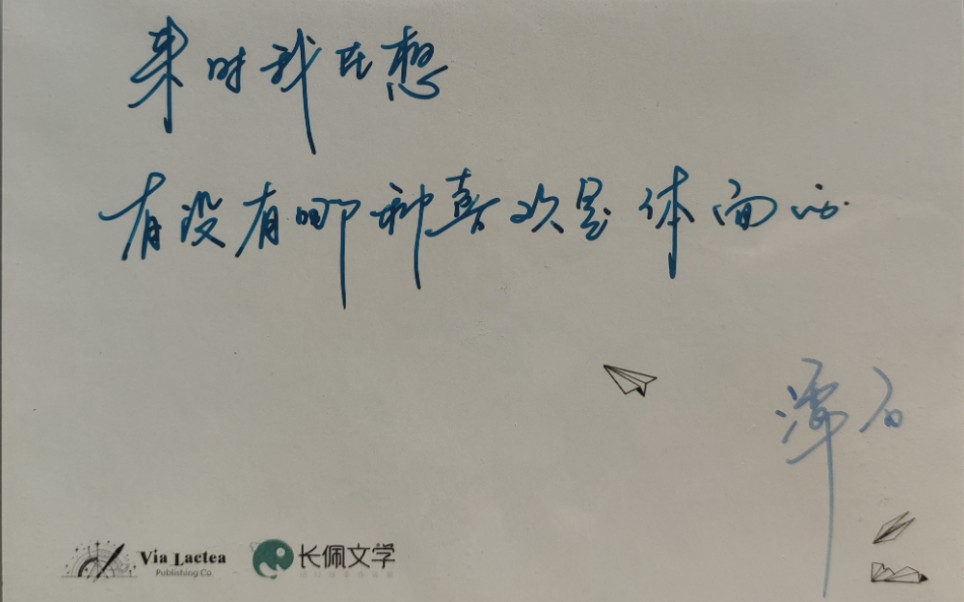 来时我在想
有没有哪种喜欢是体面的.
潭石
Via Lactea
Publishing Co.
长佩文学